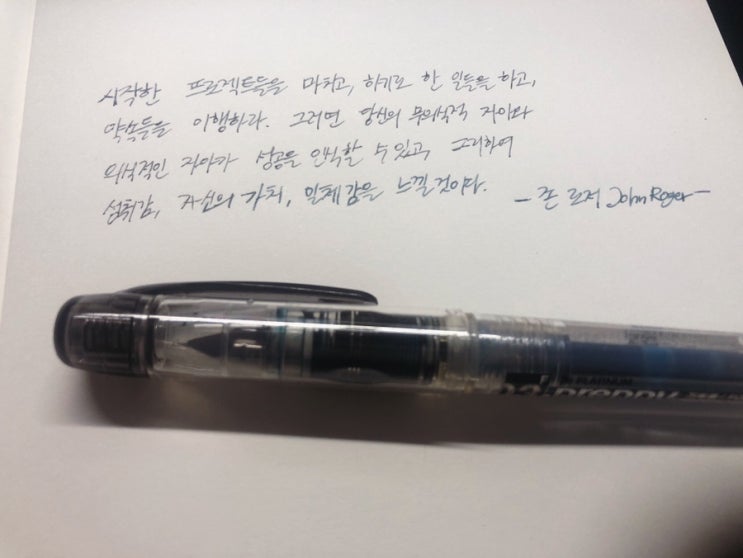 시작한 프로젝트들을 마치고, 하기로 한 일들을 하고,
약속들을 이행하라. 그러면 당신의 무의식적 자아와
의식적인 자아가 성공을 인식할 수 있고, 그리하여
성취감, 자신의 가치, 일체감을 느낄 것이다. - 존 로저 John Roger -
PLATINUM
preppy